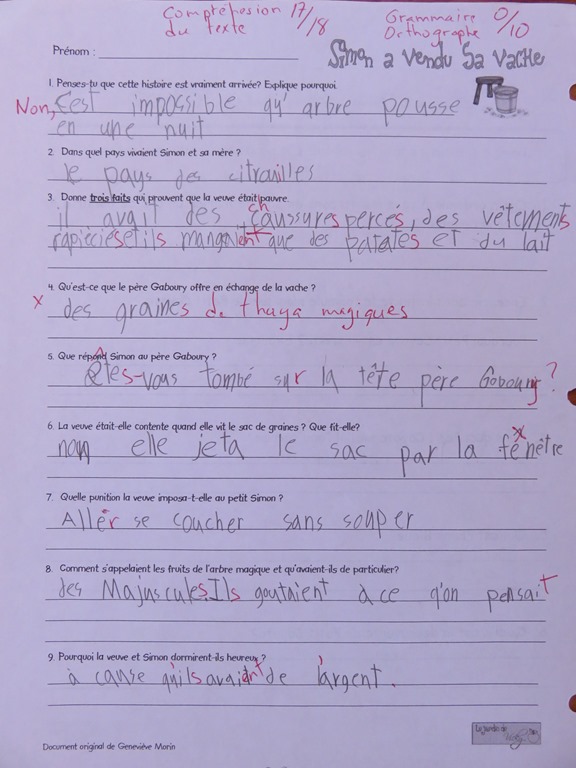 Compréhesion 17/18 Grammaire 0/10
du texte Orthographe
Prénom :
Simon a vendu sa vache
1. Penses-tu que cette histoire est vraiment arrivée? Explique pourquoi.
Non, C'est impossible qu' arbre pousse
en une nuit
2. Dans quel pays vivaient Simon et sa mère ?
le pays des citrailles
3. Donne trois faits qui prouvent que la veuve était pauvre.
il avait des chaussures percés, des vêtements
rapiéciés et ils mangaient que des patates et du lait
4. Qu'est-ce que le père Gaboury offre en échange de la vache ?
x des graines de thuya magiques
5. Que répond Simon au père Gaboury ?
Êtes-vous tombé sur la tête père Goboury ?
6. La veuve était-elle contente quand elle vit le sac de graines ? Que fit-elle?
non elle jeta le sac par la fenêtre
7. Quelle punition la veuve imposa-t-elle au petit Simon ?
Aller se coucher sans souper
8. Comment s'appelaient les fruits de l'arbre magique et qu'avaient-ils de particulier?
des Majuscules. Ils goutaient à ce q'on pensait
9. Pourquoi la veuve et Simon dormirent-ils heureux ?
à cause qu'ils avaient de l'argent.
Le jardin de
Document original de Geneviève Morin